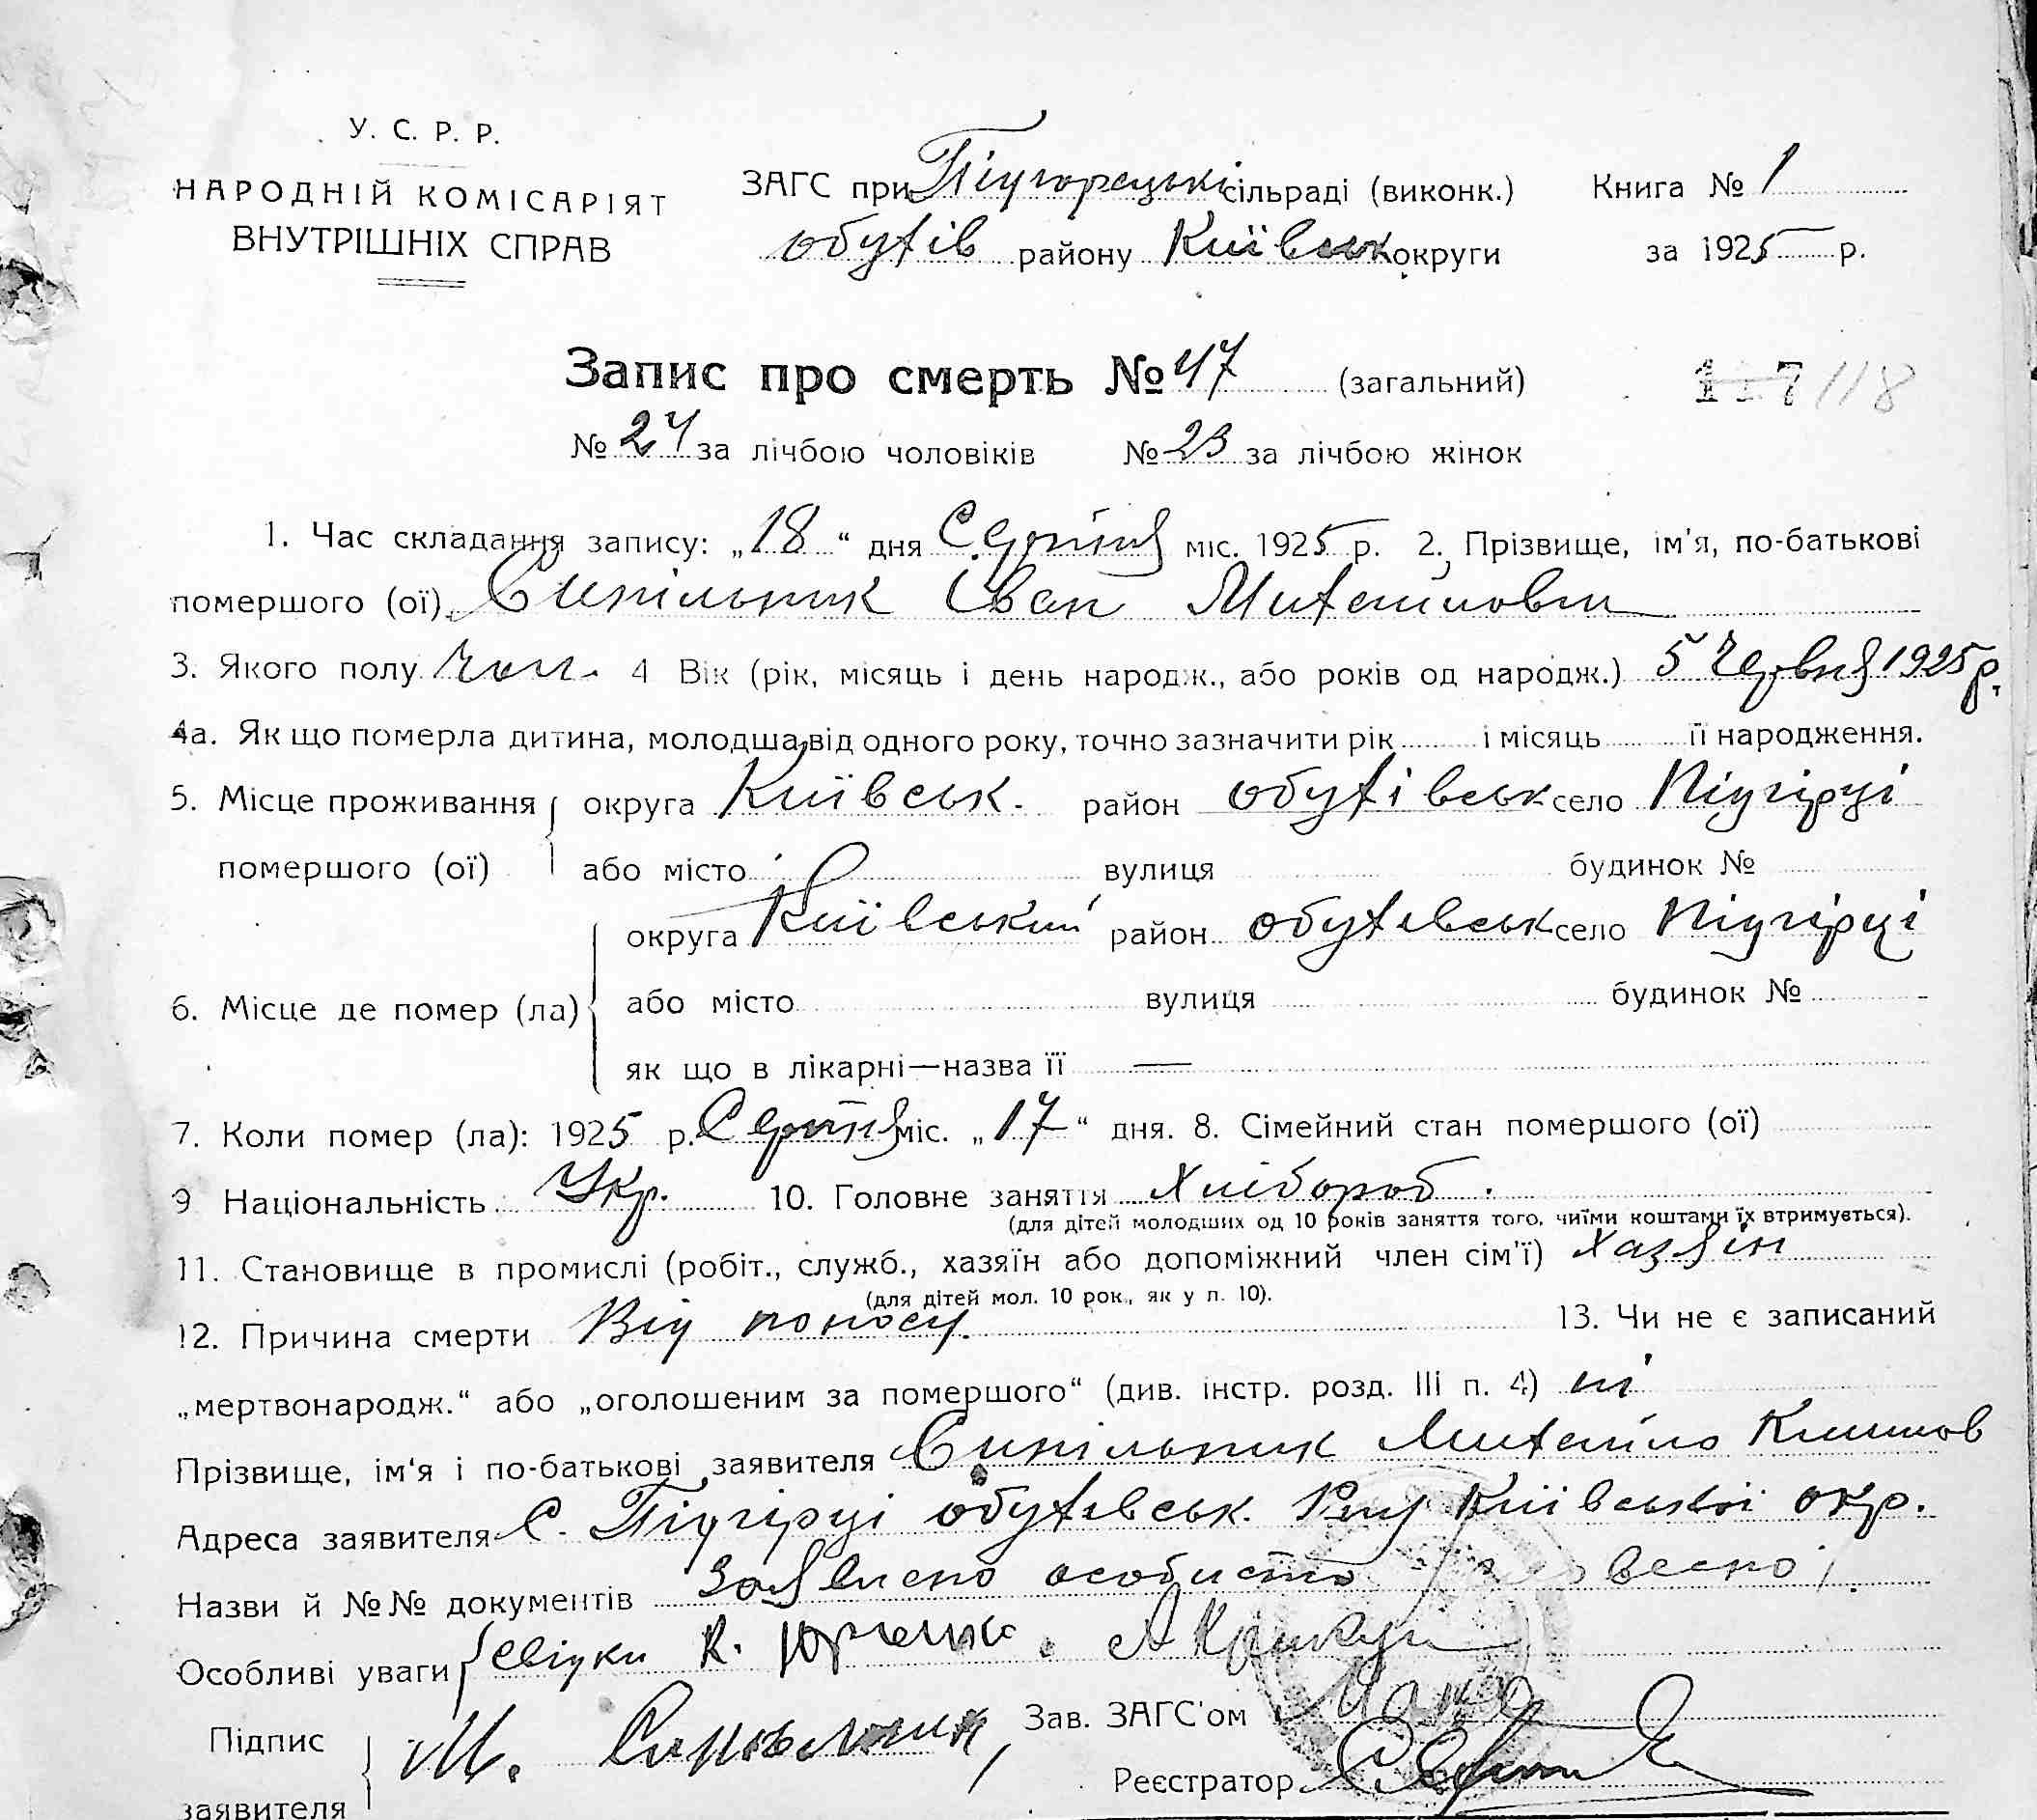 У. С. Р. Р.
НАРОДНІЙ КОМІСАРІЯТ
ВНУТРІШНІХ СПРАВ
ЗАГС при Підгорецькі сільраді (виконк.)
обухів району Київськ округи
Книга № 1
за 1925 р.
Запис про смерть № 47 (загальний)
117 118
№ 24 за лічбою чоловіків № 23 за лічбою жінок
1. Час складання запису: „18“ дня Серпня міс. 1925 р. 2. Прізвище, ім'я, по-батькові
помершого (ої) Синільник Іван Михайлович
3. Якого полу чол. 4 Вік (рік, місяць і день народж., або років од народж.) 5 Червня 1925 р.
4а. Як що померла дитина, молодша від одного року, точно зазначити рік і місяць її народження.
5. Місце проживання округа Київськ. район обухівськ село Підгірці
помершого (ої) або місто вулиця будинок №
округа Київський район обухівськ село Підгірці
6. Місце де помер (ла) або місто вулиця будинок №
як що в лікарні—назва її —
7. Коли помер (ла): 1925 р. Серпня міс. „17“ дня. 8. Сімейний стан помершого (ої)
9 Національність Укр. 10. Головне заняття Хлібороб.
(для дітей молодших од 10 років заняття того, чиїми коштами їх втримується).
11. Становище в промислі (робіт., служб., хазяїн або допоміжний член сім'ї) Хазяїн
(для дітей мол. 10 рок., як у п. 10).
12. Причина смерти Від поносу. 13. Чи не є записаний
„мертвонародж.“ або „оголошеним за помершого“ (див. інстр. розд. III п. 4) ні
Прізвище, ім'я і по-батькові заявителя Синільник Михайло Климов
Адреса заявителя С. Підгірці обухівськ. Рну Київської окр.
Назви й №№ документів Заявлено особисто
Особливі уваги свідки К. Юрченко. А
Підпис М. Синельник, Зав. ЗАГС'ом
заявителя Реєстратор